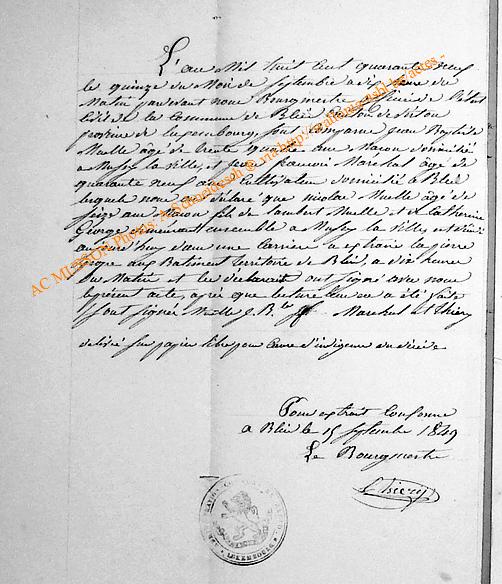 L'an Mil huit Cent quarante neuf
le quinze du Mois de Septembre a dix heure du
Matin pardevant nous Bourgmestre officier de l'état
Civil de la Commune de Bleid Canton de Virton
province de Luxembourg, sont comparu Jean Baptiste
Muelle âgé de trente quatre ans Macon domicilié
a Mussy la ville, et Jean françois Marechal âgé de
quarante neuf ans Cultivateur domicilié a Bleid
lequels nous ont declaré que nicolas Muelle âgé de
seize ans Macon fils de Lambert Muelle et de Catherine
George demeurant ensemble a Mussy la ville, est
aujourd'huy dans une Carriere a extraire la pierre
propre aux Batiment territoire de Bleid, a dix heures
du Matin et les déclarant ont signé avec nous
le présent acte, après que lecture leur en a été faite
sont signé Muelle J. B.te Marechal et Thiery
delivré sur papier libre pour Cause d'indigence du décédé
Pour extrait Conforme
a Bleid le 15 Septembre 1849
Le Bourgmestre
Thiery
LUXEMBOURG
AC MUSSON Photos: A-S
via http://